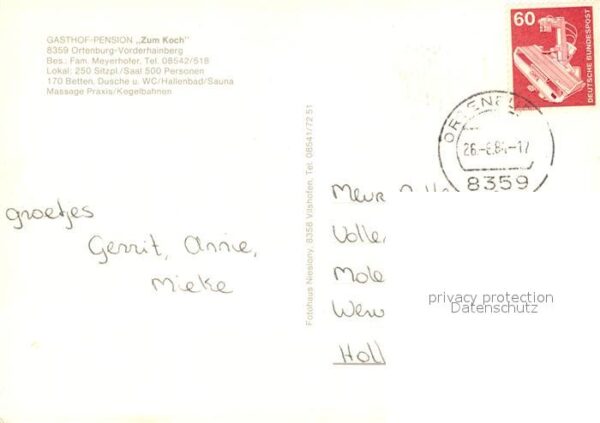 GASTHOF-PENSION „Zum Koch"
8359 Ortenburg-Vorderhainberg
Bes.: Fam. Meyerhofer, Tel. 08542/518
Lokal: 250 Sitzpl./Saal 500 Personen
170 Betten, Dusche u. WC/Hallenbad/Sauna
Massage Praxis/Kegelbahnen
60
DEUTSCHE BUNDESPOST
8359
Fotohaus Niesiony, 8358 Vilshofen, Tel. 08541/72 51
groetjes
Gerrit, Annie,
Mieke
Holl
privacy protection
Datenschutz